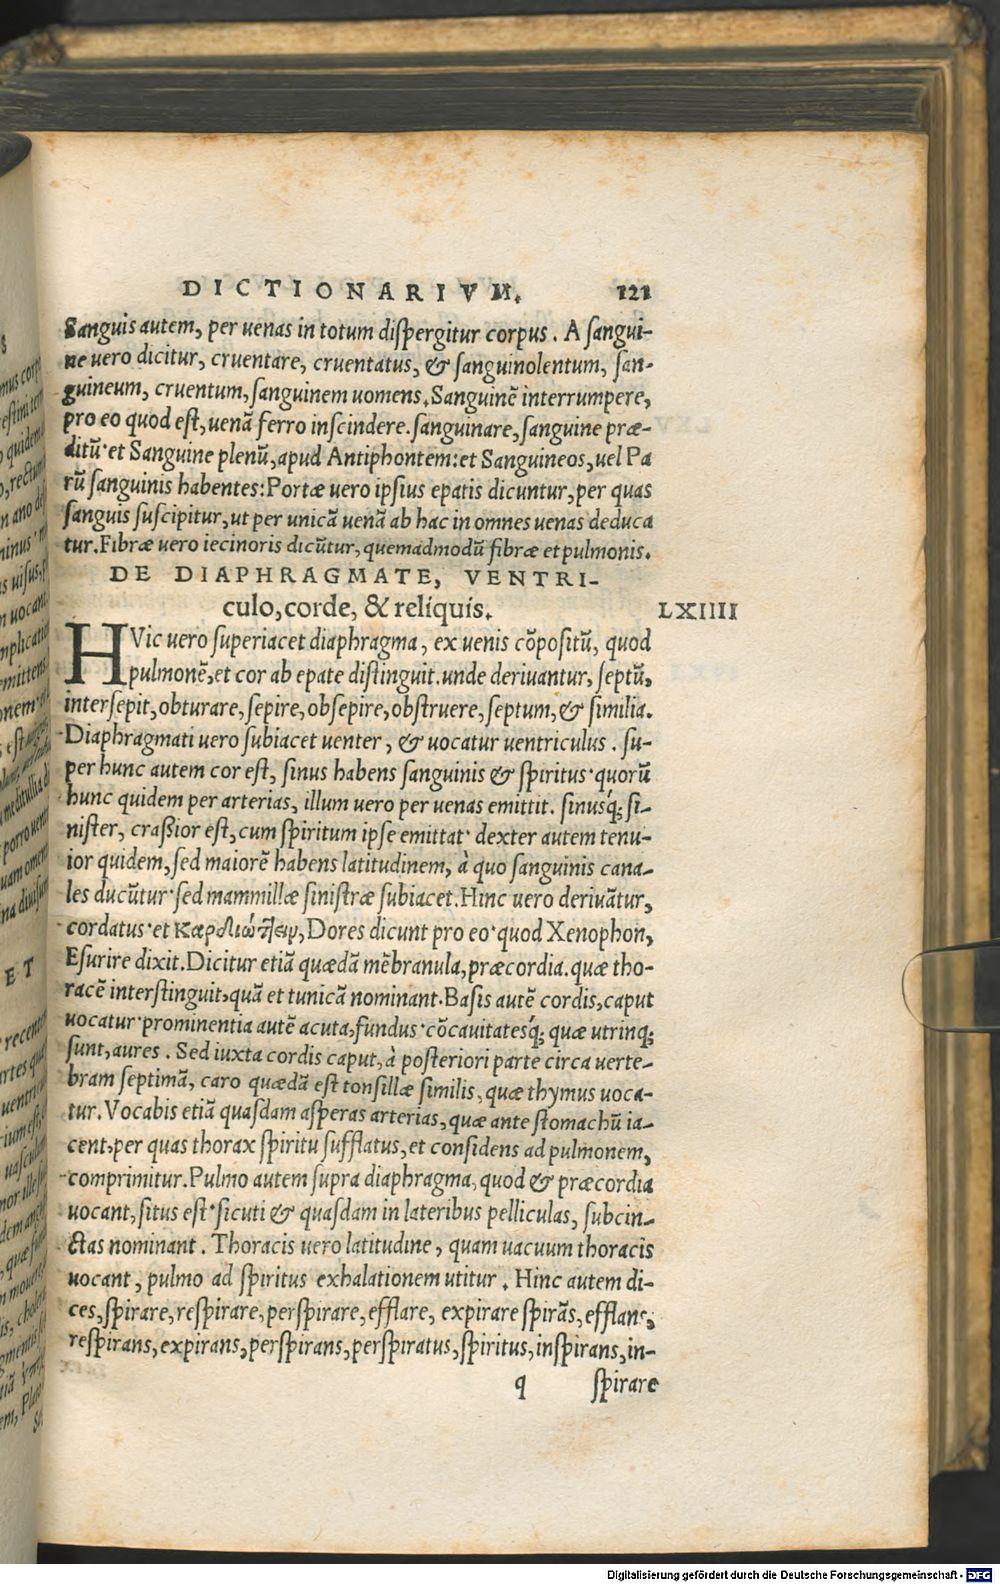 DICTIONARIVM. 121
Sanguis autem, per uenas in totum dispergitur corpus. A sangui-
ne uero dicitur, cruentare, cruentatus, & sanguinolentum, san-
guineum, cruentum, sanguinem uomens. Sanguinē interrumpere,
pro eo quod est, uenā ferro inscindere. sanguinare, sanguine præ-
ditū· et Sanguine plenū, apud Antiphontem: et Sanguineos, uel Pa
rū sanguinis habentes: Portæ uero ipsius epatis dicuntur, per quas
sanguis suscipitur, ut per unicā uenā ab hac in omnes uenas deduca
tur. Fibræ uero iecinoris dicūtur, quemadmodū fibræ et pulmonis.
DE DIAPHRAGMATE, VENTRI-
culo, corde, & reliquis. LXIIII
HVic uero superiacet diaphragma, ex uenis cōpositū, quod
pulmonē, et cor ab epate distinguit. unde deriuantur, septū,
intersepit, obturare, sepire, obsepire, obstruere, septum, & similia.
Diaphragmati uero subiacet uenter, & uocatur uentriculus. su-
per hunc autem cor est, sinus habens sanguinis & spiritus· quorū
hunc quidem per arterias, illum uero per uenas emittit. sinusq́; si-
nister, craßior est, cum spiritum ipse emittat· dexter autem tenu-
ior quidem, sed maiorē habens latitudinem, à quo sanguinis cana-
les ducūtur· sed mammillæ sinistræ subiacet. Hinc uero deriuātur,
cordatus· et Καρδιώτ]ειν, Dores dicunt pro eo· quod Xenophon,
Esurire dixit. Dicitur etiā quædā mēbranula, præcordia. quæ tho-
racē interstinguit, quā et tunicā nominant. Basis autē cordis, caput
uocatur· prominentia autē acuta, fundus· cōcauitatesq́; quæ utrinq;
sunt, aures. Sed iuxta cordis caput, à posteriori parte circa uerte-
bram septimā, caro quædā est tonsillæ similis, quæ thymus uoca-
tur. Vocabis etiā quasdam asperas arterias, quæ ante stomachū ia-
cent, per quas thorax spiritu sufflatus, et considens ad pulmonem,
comprimitur. Pulmo autem supra diaphragma, quod & præcordia
uocant, situs est· sicuti & quasdam in lateribus pelliculas, subcin-
ctas nominant. Thoracis uero latitudine, quam uacuum thoracis
uocant, pulmo ad spiritus exhalationem utitur. Hinc autem di-
ces, spirare, respirare, perspirare, efflare, expirare spirās, efflans,
respirans, expirans, perspirans, perspiratus, spiritus, inspirans, in-
q spirare
Digitalisierung gefördert durch die Deutsche Forschungsgemeinschaft - DFG